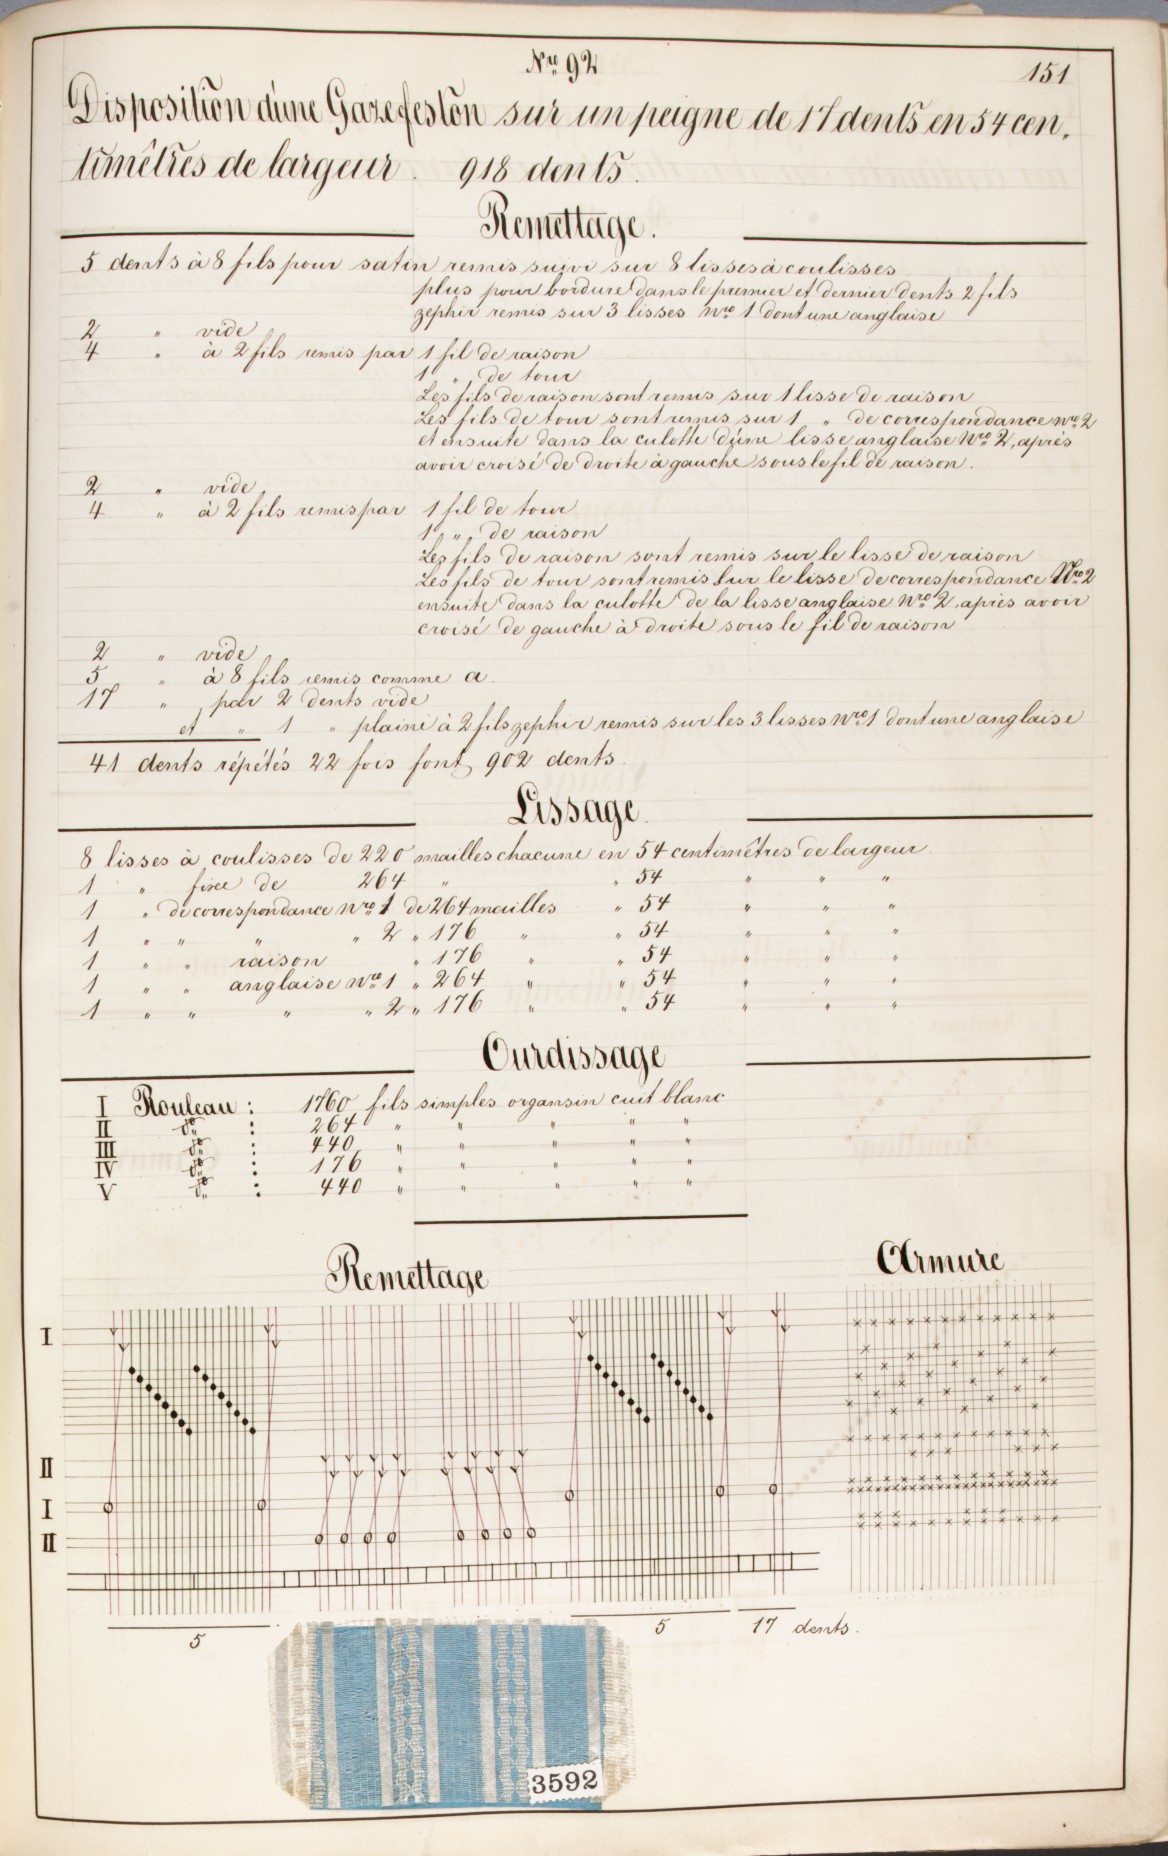 Nro 92
151
Disposition d'une Gaze feston sur un peigne de 17 dents en 54 cen,
timêtres de largeur. 918 dents.
Remettage.
5 dents à 8 fils pour satin remis suivi sur 8 lisses à coulisses
plus pour bordure dans le premier et dernier dents 2 fils
zephir remis sur 3 lisses nro 1 dont une anglaise
2 " vide
4 " à 2 fils remis par 1 fil de raison
1 " de tour
Les fils de raison sont remis sur 1 lisse de raison
Les fils de tour sont remis sur 1 " de correspondance nro 2
et ensuite dans la culotte d'une lisse anglaise Nro 2, après
avoir croisé de droite à gauche sous le fil de raison.
2 " vide
4 " à 2 fils remis par 1 fil de tour
1 " de raison
Les fils de raison sont remis sur le lisse de raison
Les fils de tour sont remis sur le lisse de correspondance Nro 2
ensuite dans la culotte de la lisse anglaise Nro 2, après avoir
croisé de gauche à droite sous le fil de raison
2 " vide
5 " à 8 fils remis comme a.
17 " par 2 dents vide
et " 1 " plaine à 2 fils zephir remis sur les 3 lisses Nro 1 dont une anglaise
41 dents répétés 22 fois font 902 dents.
Lissage.
8 lisses à coulisses de 220 mailles chacune en 54 centimêtres de largeur
1 " fixe de 264 " " 54 " " "
1 " de correspondance nro 1 de 264 mailles " 54 " " "
1 " " " " 2 " 176 " " 54 " " "
1 " " raison " 176 " " 54 " " "
1 " " anglaise nro 1 " 264 " " 54 " " "
1 " " " " 2 " 176 " " 54 " " "
Ourdissage
I Rouleau : 1760 fils simples organsin cuit blanc
II do : 264 " " " " "
III do : 440 " " " " "
IV do : 176 " " " " "
V do : 440 " " " " "
Remettage
Armure
I
II
I
II
5
5
17 dents.
3592